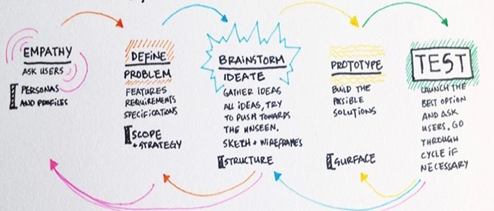 EMPATHY
ASK USERS
PERSONAS
AND PROFILES
DEFINE
PROBLEM
FEATURES
REQUIREMENTS
SPECIFICATIONS
SCOPE
+ STRATEGY
BRAINSTORM
IDEATE
GATHER IDEAS
ALL IDEAS, TRY
TO PUSH TOWARDS
THE UNSEEN,
SKETCH + WIREFRAMES
STRUCTURE
PROTOTYPE
BUILD THE
POSIBLE
SOLUTIONS
SURFACE
TEST
LAUNCH THE
BEST OPTION
AND ASK
USERS, GO
THROUGH
CYCLE IF
NECESSARY